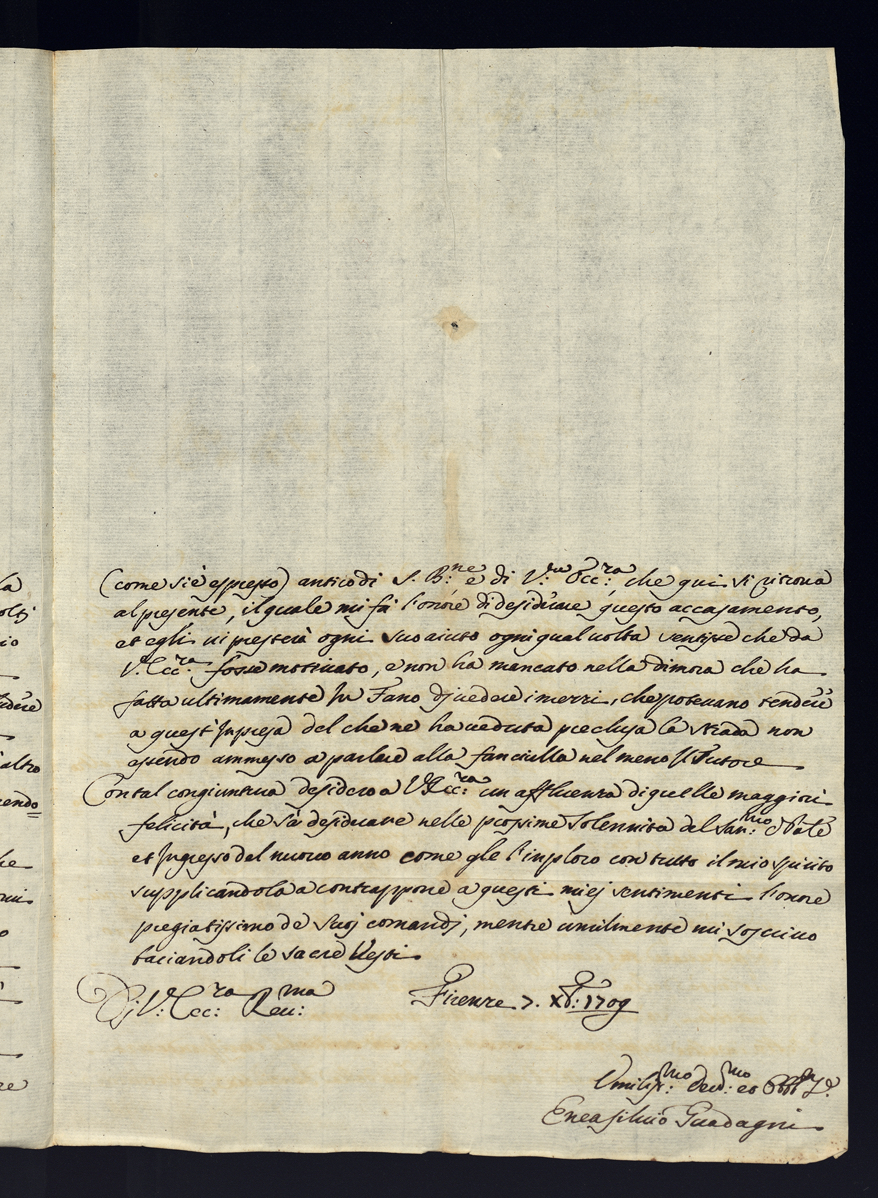 (come si è espresso) antico di S. B.ne e di V.ra Ecc.ra, che qui si ritrova
al presente, il quale mi fà l'onore di desiderare questo accasamento,
et egli vi presterà ogni suo aiuto ogni qual volta sentisse che da
V. Ecc.ra fosse motivato, e non ha mancato nella dimora che ha
fatta ultimamente in Fano di vedere i mezzi, che potevano tendere
a quest'inpresa del che ne ha veduta preclusa la strada non
essendo ammesso a parlare alla fanciulla nel meno il Tutore
Con tal congiuntura desidero a V. Ecc.ra un affluenza di quelle maggiori
felicità, che sà desiderare nelle prossime solennità del San.mo Natale
et ingresso del nuovo anno come gle l'inploro con tutto il mio spirito
supplicandola a contrapporre a questi miej sentimenti l'onore
pregiatissimo de suoj comandj, mentre umilmente mi soscrivo
baciandoli le sacre Vesti
Dj V. Ecc.ra Reu.ma Firenze 7. Xb: 1709
Umiliss.mo deu.mo et Obbl.
Enea silvio Guadagni
la
io
altro
endo
he